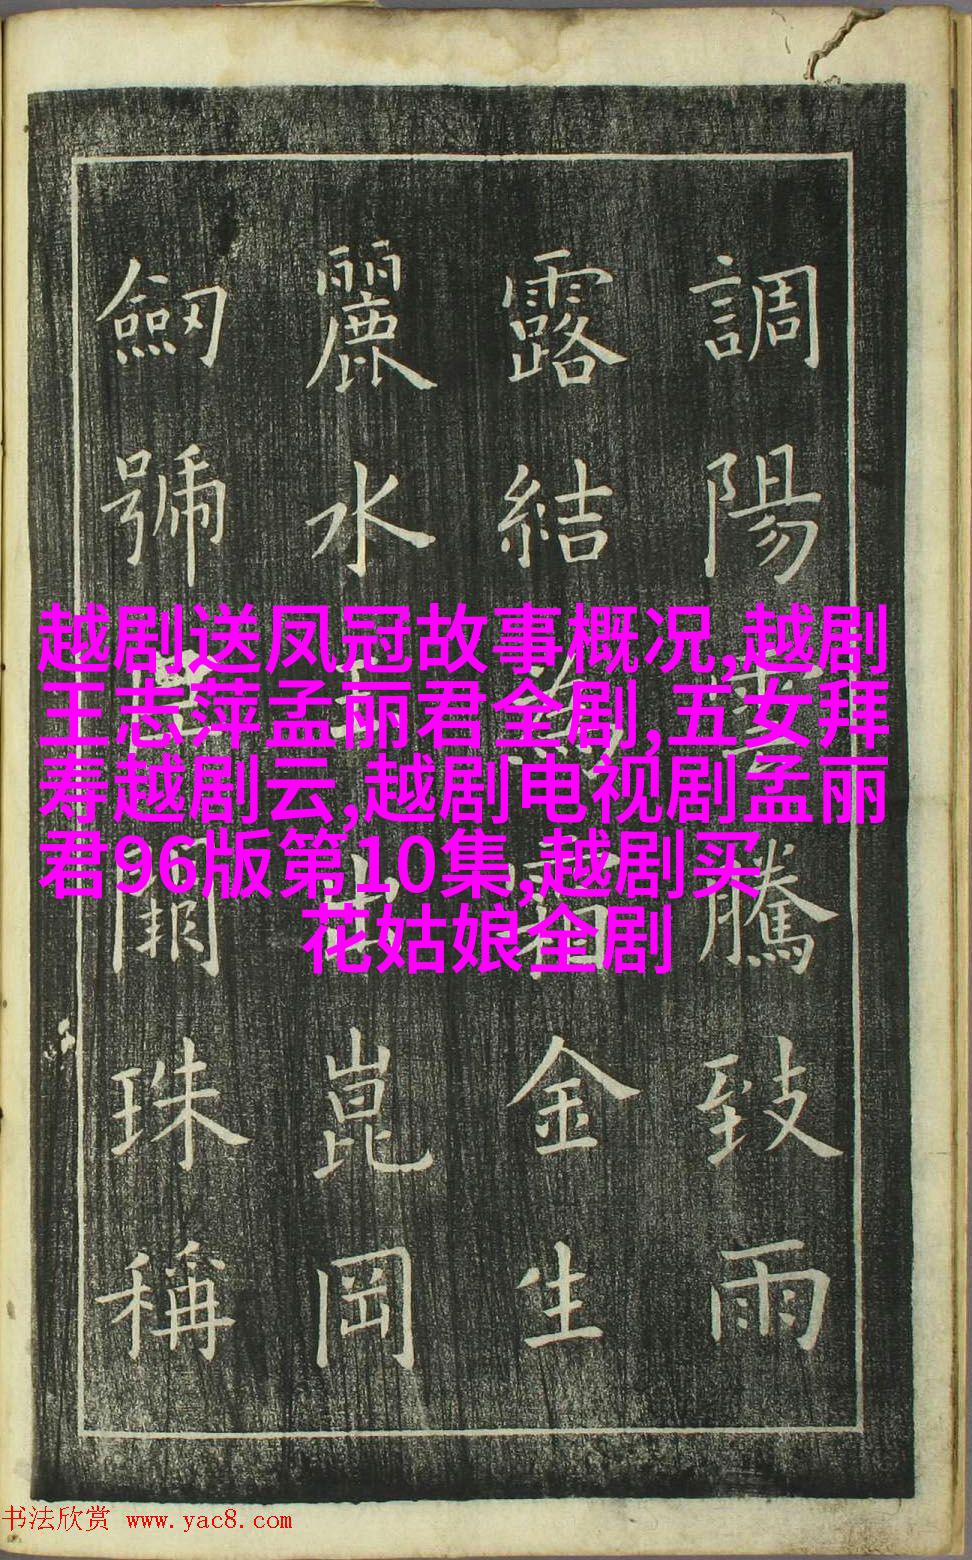 調陽騰致雨
露結金生
麗水崑岡
劒號闕珠稱
越剧送凤冠故事概况,越剧
王志萍孟丽君全剧,五女拜
寿越剧云,越剧电视剧孟丽
君96版第10集,越剧买
花姑娘全剧
书法欣赏 www.yac8.com